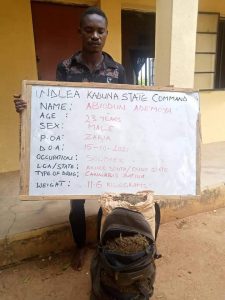 NDLEA KADUNA STATE COMMAND
NAME: ABIODUN ADEMOYA
AGE: 23 YEARS
SEX: MALE
P.O.A: ZARIA
D.O.A: 15-10-2021
OCCUPATION:
LGA/STATE: STATE
TYPE OF DRUG: CANNABIS SATIVA
WEIGHT: 11.5 KILOGRAMS